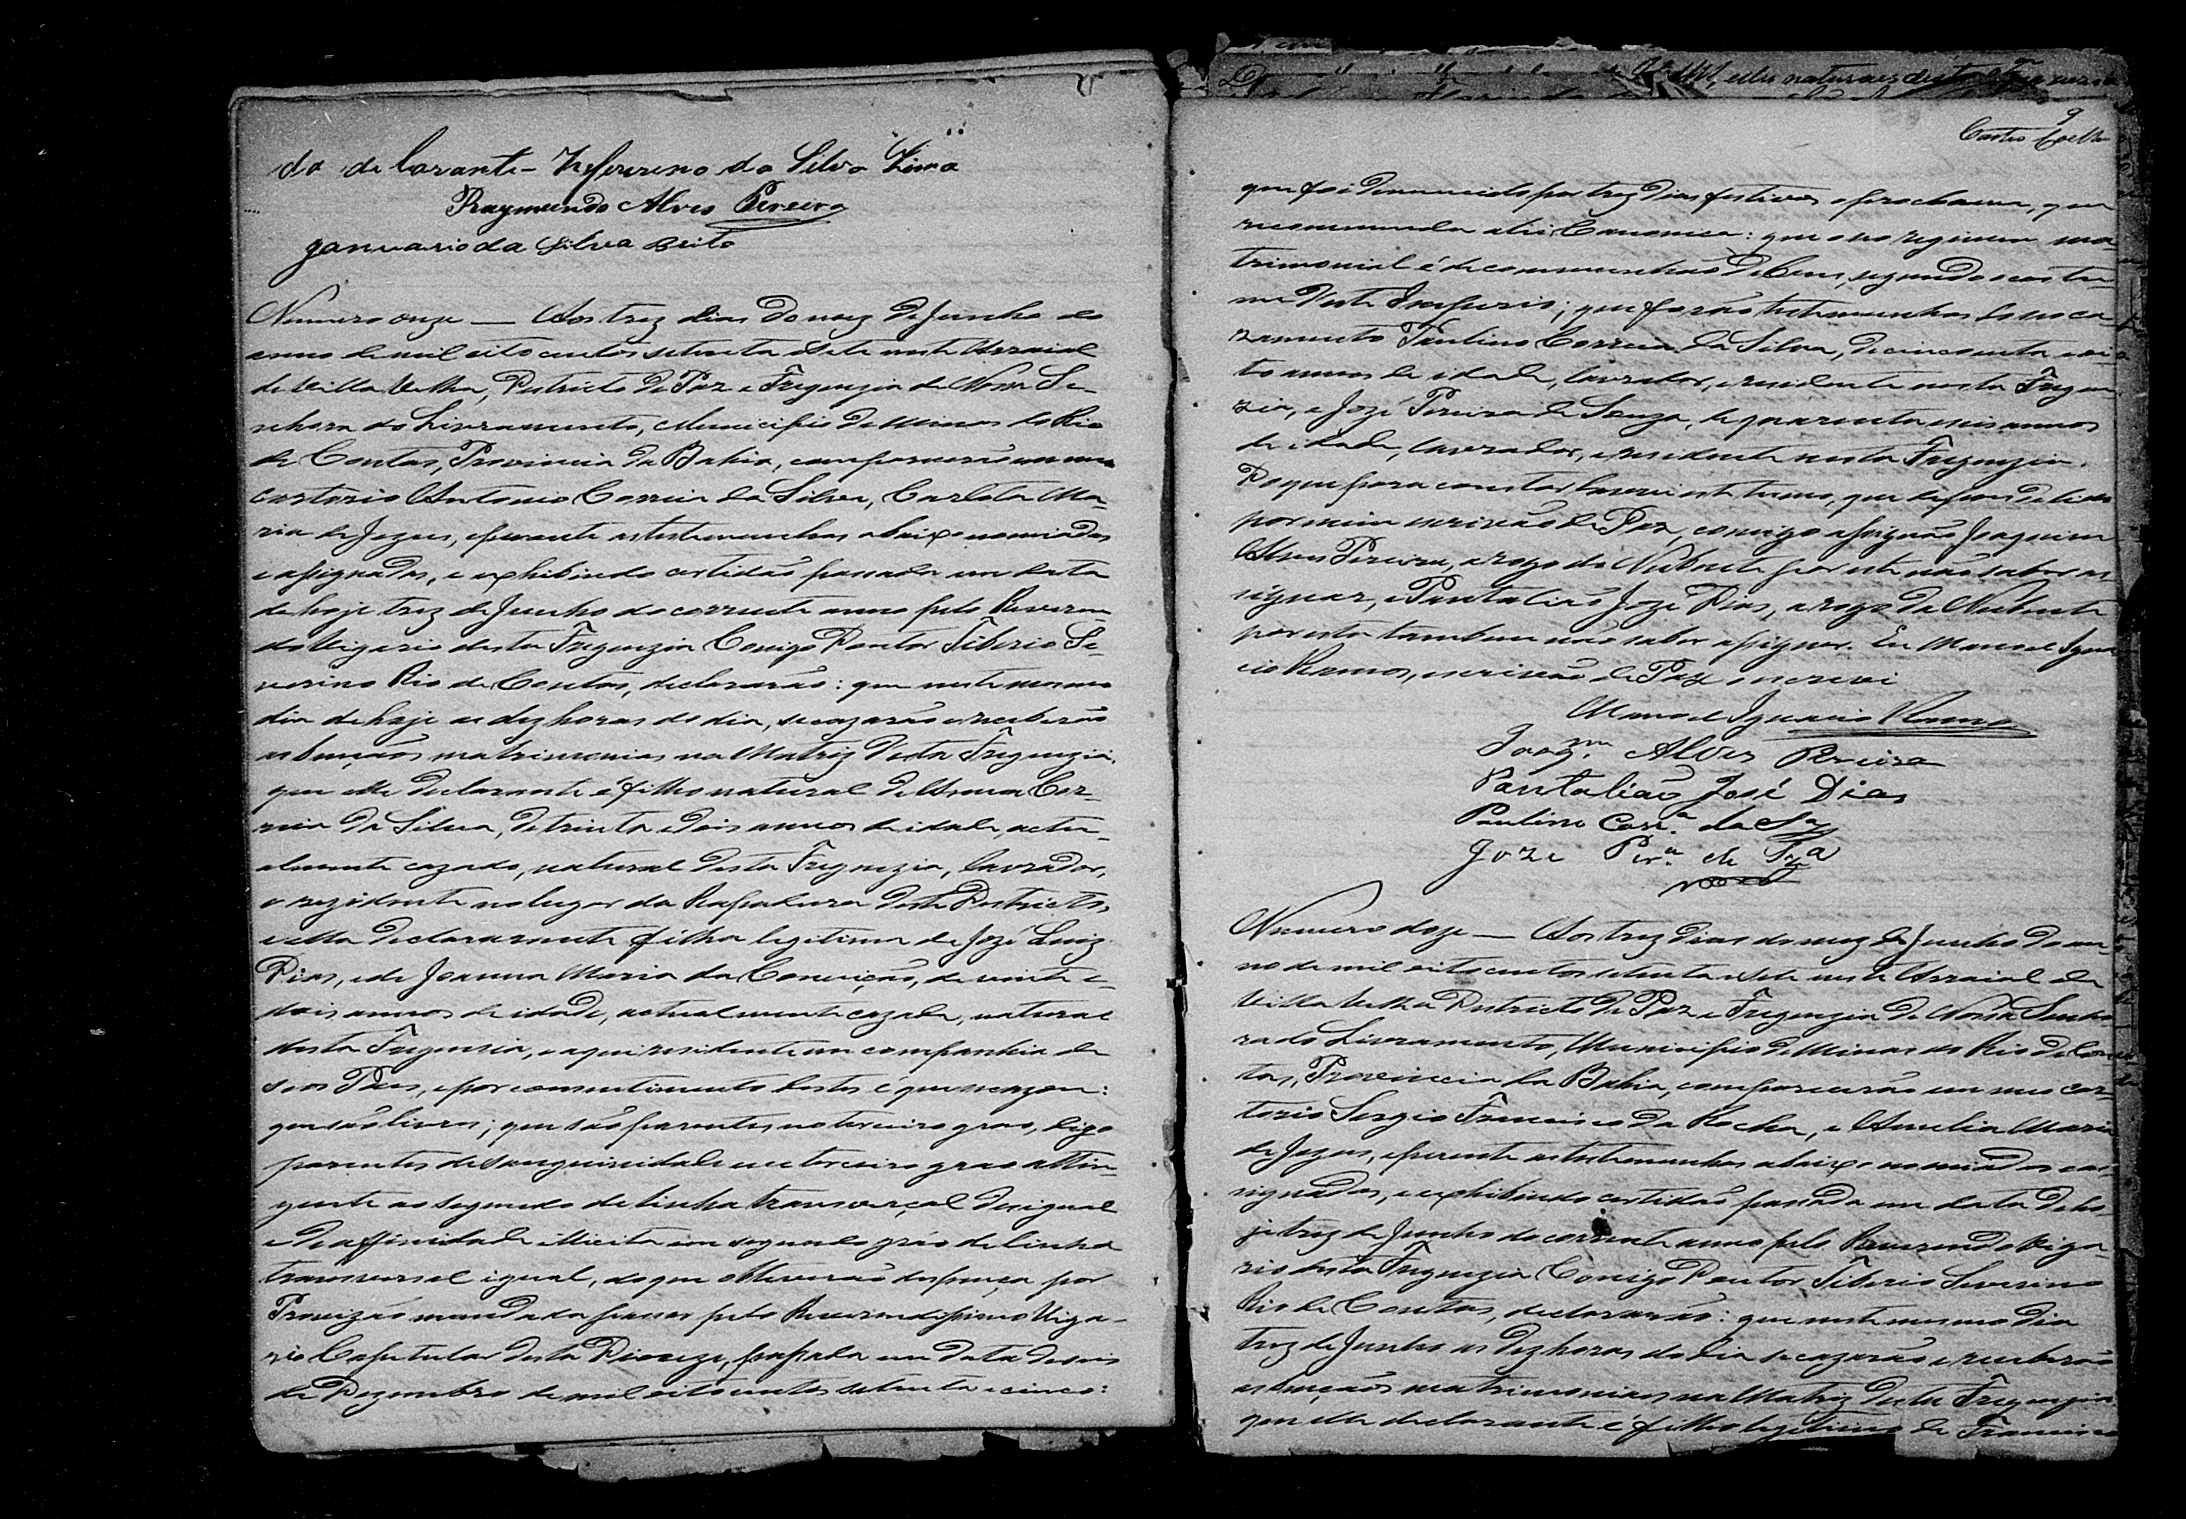 da declarante - Zeferino da Silva Lima
Raymundo Alves Pereira
Januario da Silva Brito
Numero onze — Aos trez dias do mez de Junho do
anno de mil oito centos setenta e sete neste Arraial
de Villa Velha, Districto de Paz e Freguezia de Nossa Se-
nhora do Livramento, Municipio de Minas do Rio
de Contas, Provincia da Bahia, comparecerão em meu
cartorio Antonio Correia da Silva, Carlota Ma-
ria de Jezus, e perante as testemunhas abaixo nomiadas
e assignadas, e exhibindo certidão passada em data
de hoje trez de Junho do corrente anno pelo Reveren-
do Vigario desta Freguezia Conigo Doutor Tiberio Se-
verino Rio de Contas, declararão: que neste mesmo
dia de hoje as dez horas do dia, se cazarão e receberão
as benções matrimoniais na Matriz desta Freguezia,
que elle declarante é filho natural de Anna Cor-
reia da Silva, de trinta e dois annos de idade, actu-
almente cazado, natural desta Freguezia, lavrador,
e rezidente no lugar da Rapadura deste Districto,
e ella declarante filha legitima de Jozé Luiz
Dias, e de Joanna Maria da Conceição, de vinte e
dois annos de idade, actualmente cazada, natural
desta Freguezia, e aqui residente em companhia de
seos Paes, e por consentimento destes é que se cazou:
que são livres; que são parentes no terceiro grao, digo
parentes de sanguinidade em terceiro grao attin-
gente ao segundo de linha transverçal desigual
e de affinidade illicita em segundo gráo de linha
transversal igual, do que obtiverão dispença por
Provizão mandada passar pelo Reverendissimo Viga-
rio Capitular desta Dioceze, passada em data de seis
de Dezembro de mil oito centos setenta e cinco:
9
Castro Coelho
que foi denunciado por trez dias festivos o proclama, que
recommenda a lei Canonica: que o seo regimen ma-
trimonial é de communhão de bens, segundo o costu-
me deste Imperio; que forão testemunhas do seo ca-
zamento Paulino Correia da Silva, de cincoenta e oi-
to annos de idade, lavrador, e residente nesta Fregue-
zia, e Jozé Pereira de Souza, de quarenta e seis annos
de idade, lavrador, e residente nesta Freguezia.
Do que para constar lavrei este termo, que depois de lido
por mim escrivão de Paz, comigo assignão Joaquim
Alves Pereira, a rogo do Nubente por este não saber as-
signar, e Pantalião Joze Dias, a rogo da Nubente
por esta tambem não saber assignar. Eu Manoel Igna
cio Ramos, escrivão de Paz escrevi
Manoel Ignacio Ramos
Joaqm. Alves Pereira
Pantalião José Dias
Paulino Corra. da Sa.
Joze Pera. de Sza
Numero doze — Aos trez dias do mez de Junho do an-
no de mil oito centos setenta e sete neste Arraial de
Villa Velha Districto de Paz e Freguezia de Nossa Senho
ra do Livramento, Municipio de Minas do Rio de Con-
tas, Provincia da Bahia, comparecerão em meu car-
torio Sergio Francisco da Rocha, e Amelia Maria
de Jezus, e perante as testemunhas abaixo nomiadas e as-
signadas, e exhibindo certidão passada em data de ho-
je trez de Junho do corrente anno pelo Reverendo Viga
rio desta Freguezia Conigo Doutor Tiberio Severino
Rio de Contas, declararão: que neste mesmo dia
trez de Junho as dez horas do dia se cazarão e receberão
as benções matrimoniais na Matriz desta Freguezia
que elle declarante é filho legitimo de Francisco